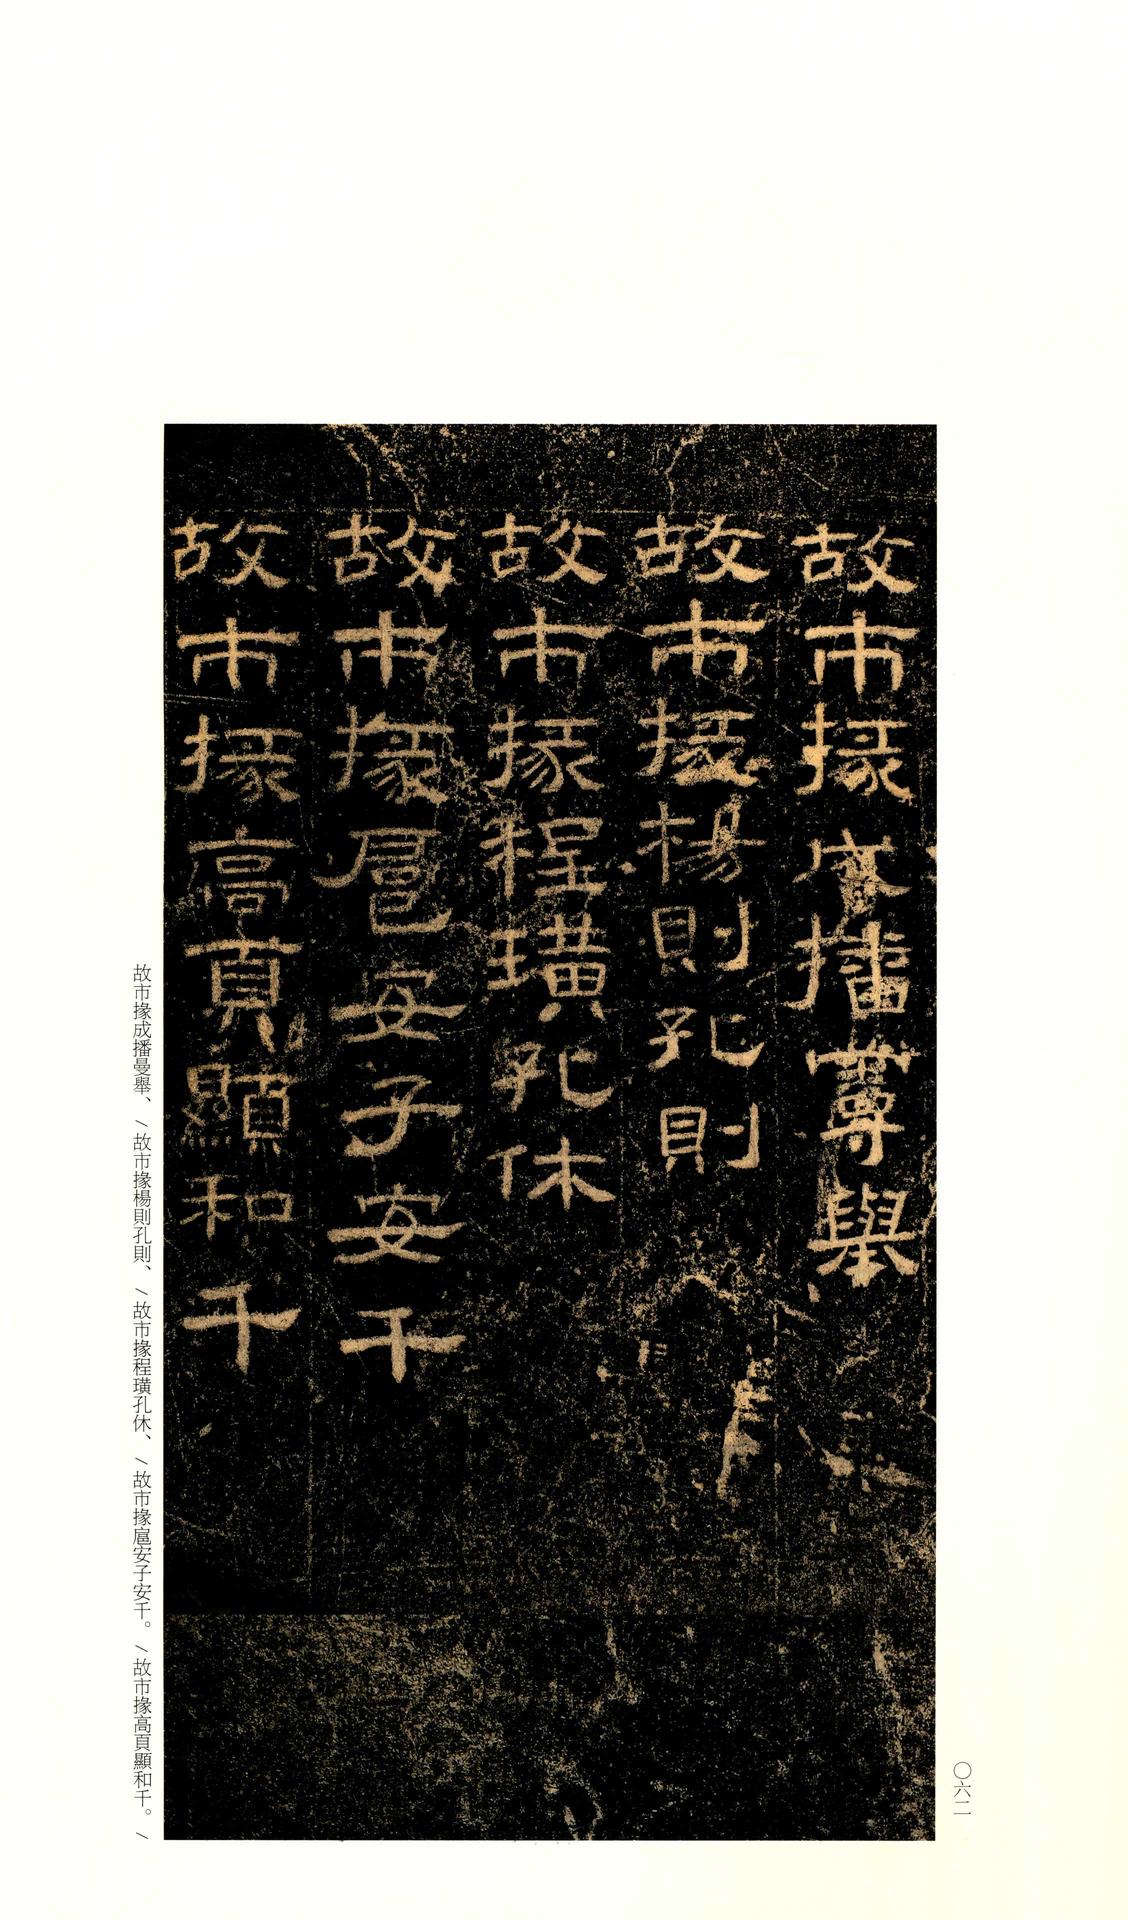 故市掾成播曼舉
故市掾楊則孔則
故市掾程璜孔休
故市掾扈安子安千
故市掾高頁顯和千
故市掾成播曼舉、/故市掾楊則孔則、/故市掾程璜孔休、/故市掾扈安子安千。/故市掾高頁顯和千。/
〇六二